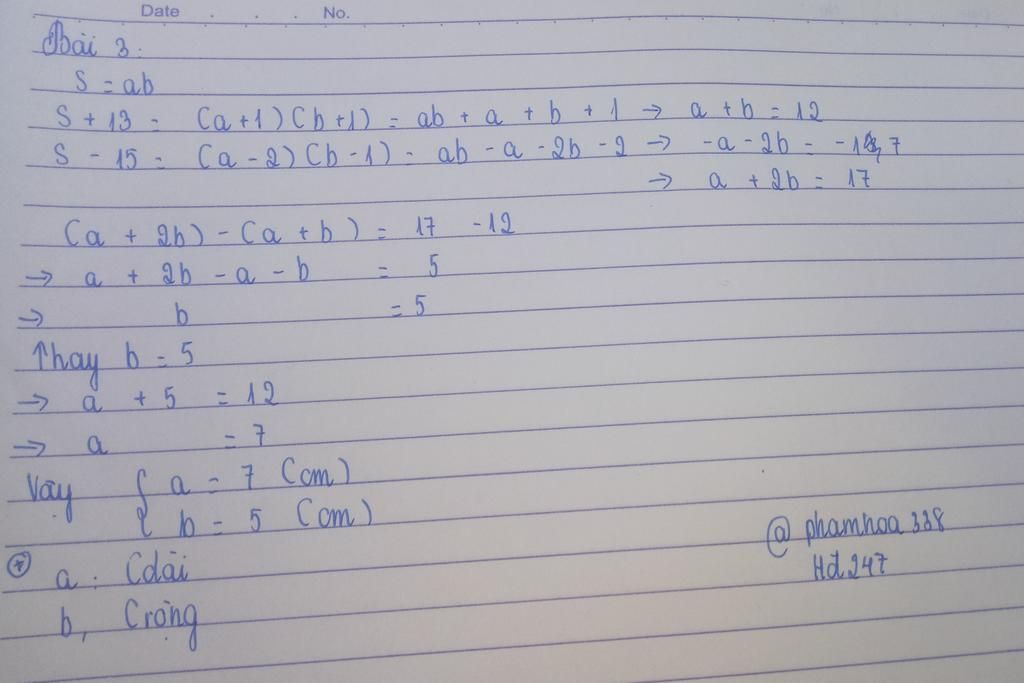 Date . . . . No.
Bài 3:
S = ab
S + 13 = (a+1)(b+1) = ab + a + b + 1 → a + b = 12
S - 15 = (a-2)(b-1) = ab - a - 2b - 2 → -a - 2b = -17
→ a + 2b = 17
(a + 2b) - (a + b) = 17 - 12
→ a + 2b - a - b = 5
→ b = 5
Thay b = 5
→ a + 5 = 12
→ a = 7
Vậy { a = 7 (cm)
{ b = 5 (cm)
* a : Cdài
b, Crộng
@ phamhoa 338
Hd 247